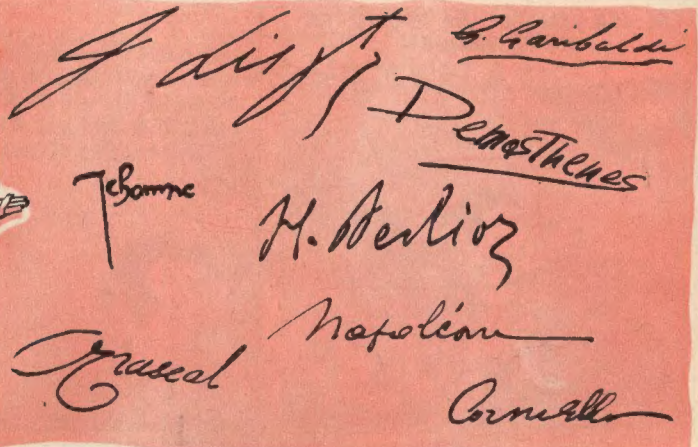 F Liszt
G. Garibaldi
Demosthenes
Jehanne
H. Berlioz
Napoléon
Pascal
Corneille